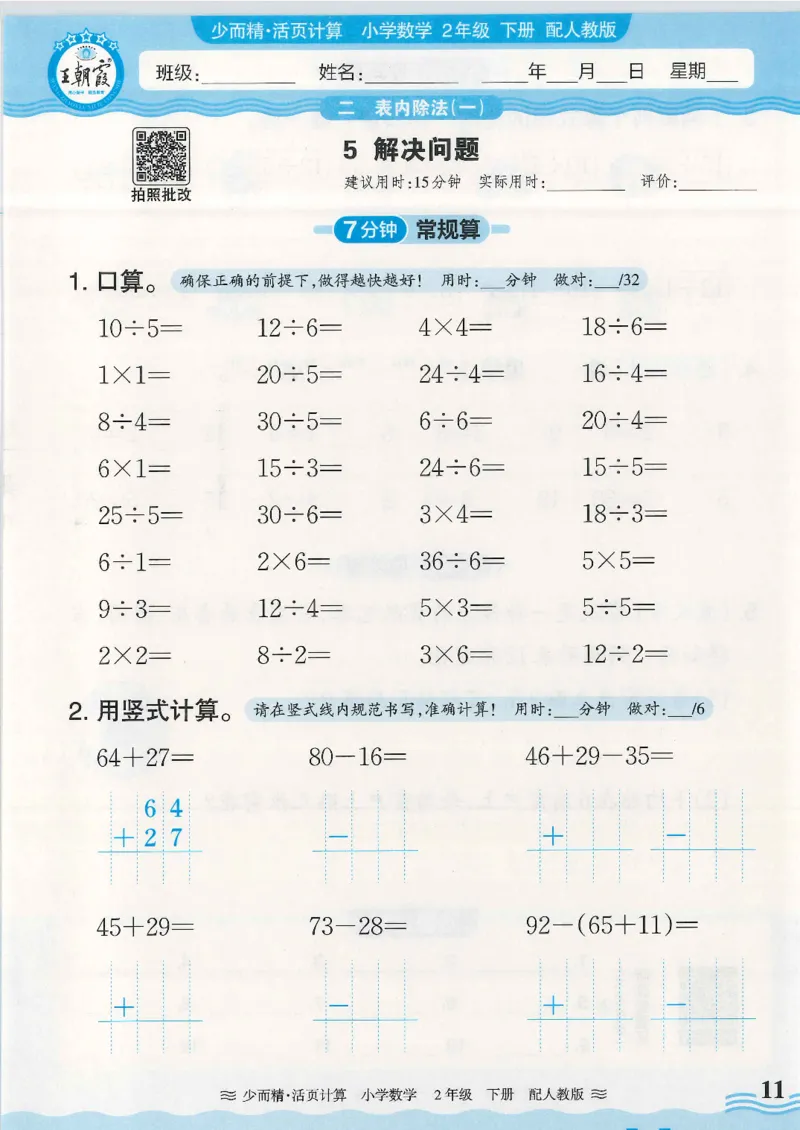 少而精·活页计算 小学数学 2年级 下册 配人教版
王朝霞
班级:________ 姓名:________ ____年___月___日 星期___
二 表内除法(一)
5 解决问题
拍照批改
建议用时:15分钟 实际用时:________ 评价:________
7分钟 常规算
1. 口算。 确保正确的前提下,做得越快越好! 用时:___分钟 做对:___/32
10÷5= 12÷6= 4×4= 18÷6=
1×1= 20÷5= 24÷4= 16÷4=
8÷4= 30÷5= 6÷6= 20÷4=
6×1= 15÷3= 24÷6= 15÷5=
25÷5= 30÷6= 3×4= 18÷3=
6÷1= 2×6= 36÷6= 5×5=
9÷3= 12÷4= 5×3= 5÷5=
2×2= 8÷2= 3×6= 12÷2=
2. 用竖式计算。 请在竖式线内规范书写,准确计算! 用时:___分钟 做对:___/6
64+27= 80-16= 46+29-35=
6 4
+ 2 7 - + -
45+29= 73-28= 92-(65+11)=
+ - + -
少而精·活页计算 小学数学 2年级 下册 配人教版
11